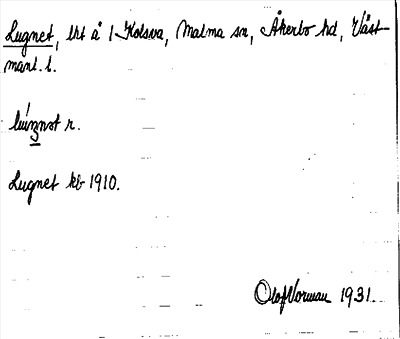 Lugnet, lht å 1 Kolsva, Malma sn, Åkerbo hd, Väst-
manl. l.
Lugnet kb 1910.
Olof Norman 1931.